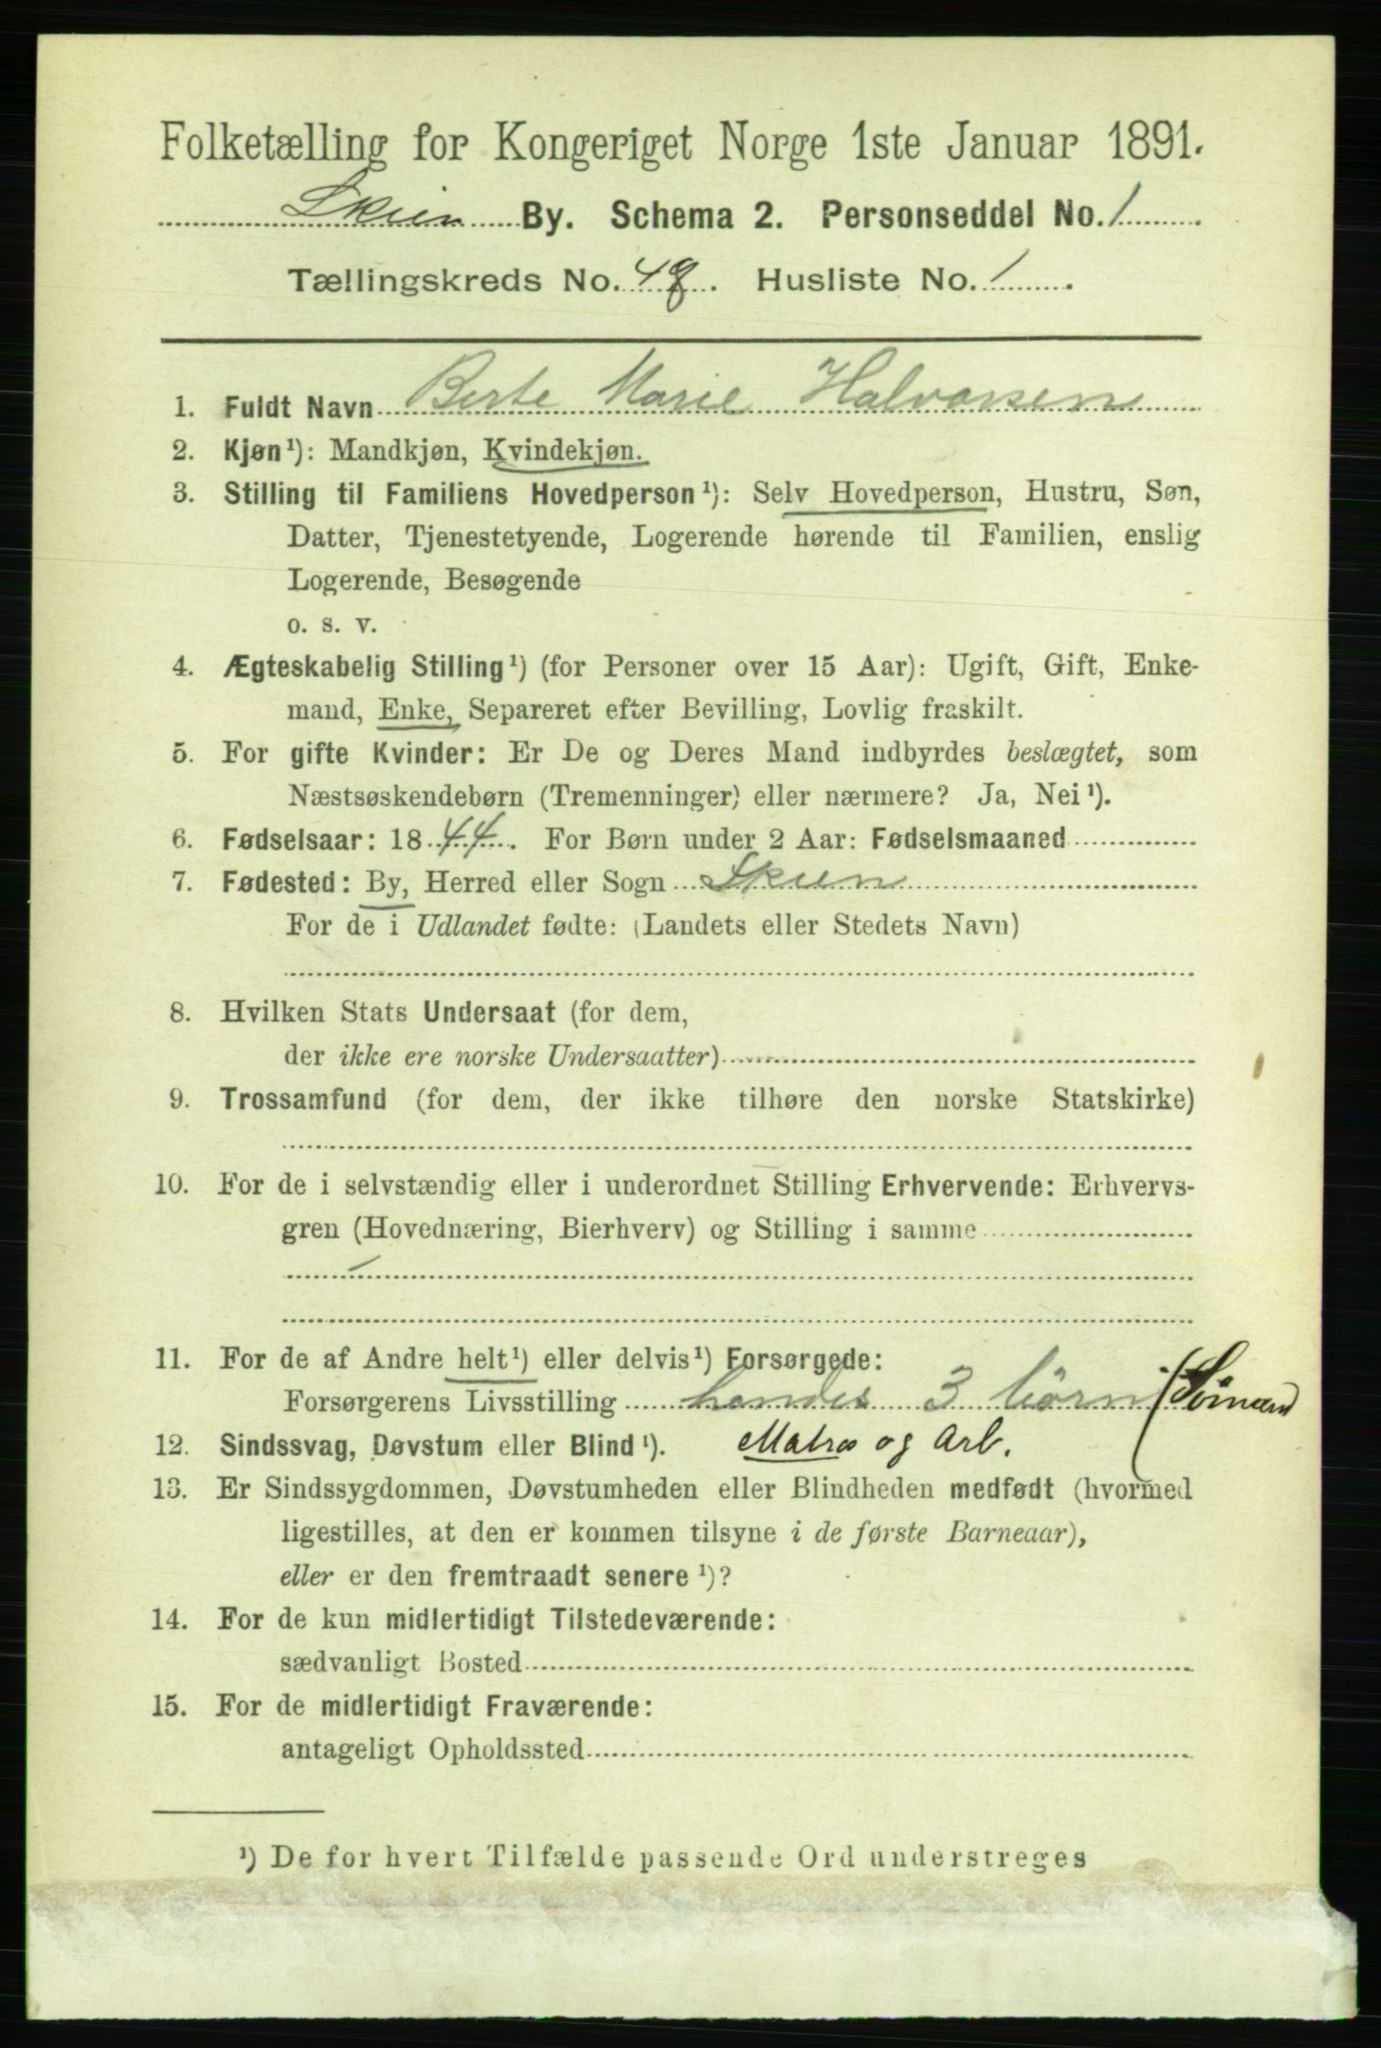 Folketælling for Kongeriget Norge 1ste Januar 1891.
Skien By. Schema 2. Personseddel No. 1
Tællingskreds No. 48. Husliste No. 1.
1. Fuldt Navn Berte Marie Halvorsen
2. Kjøn¹): Mandkjøn, Kvindekjøn.
3. Stilling til Familiens Hovedperson¹): Selv Hovedperson, Hustru, Søn,
Datter, Tjenestetyende, Logerende hørende til Familien, enslig
Logerende, Besøgende
o. s. v.
4. Ægteskabelig Stilling¹) (for Personer over 15 Aar): Ugift, Gift, Enke-
mand, Enke, Separeret efter Bevilling, Lovlig fraskilt.
5. For gifte Kvinder: Er De og Deres Mand indbyrdes beslægtet, som
Næstsøskendebørn (Tremenninger) eller nærmere? Ja, Nei¹).
6. Fødselsaar: 1844. For Børn under 2 Aar: Fødselsmaaned
7. Fødested: By, Herred eller Sogn Skien
For de i Udlandet fødte: (Landets eller Stedets Navn)
8. Hvilken Stats Undersaat (for dem,
der ikke ere norske Undersaatter)
9. Trossamfund (for dem, der ikke tilhøre den norske Statskirke)
10. For de i selvstændig eller i underordnet Stilling Erhvervende: Erhvervs-
gren (Hovednæring, Bierhverv) og Stilling i samme
11. For de af Andre helt¹) eller delvis¹) Forsørgede:
Forsørgerens Livsstilling hendes 3 börn (Sömænd
12. Sindssvag, Døvstum eller Blind¹). Matros og Arb.
13. Er Sindssygdommen, Døvstumheden eller Blindheden medfødt (hvormed
ligestilles, at den er kommen tilsyne i de første Barneaar),
eller er den fremtraadt senere¹)?
14. For de kun midlertidigt Tilstedeværende:
sædvanligt Bosted
15. For de midlertidigt Fraværende:
antageligt Opholdssted
¹) De for hvert Tilfælde passende Ord understreges